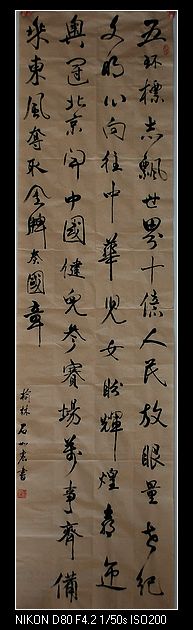 五环標志飄世界十億人民放眼量世紀
文明心向往中華児女盼輝煌喜迎
奥運北京开中國健児参賽場萬事齊備
乘東風奪取金牌奏國章
榆林石如書
NIKON D80 F4.2 1/50s ISO200